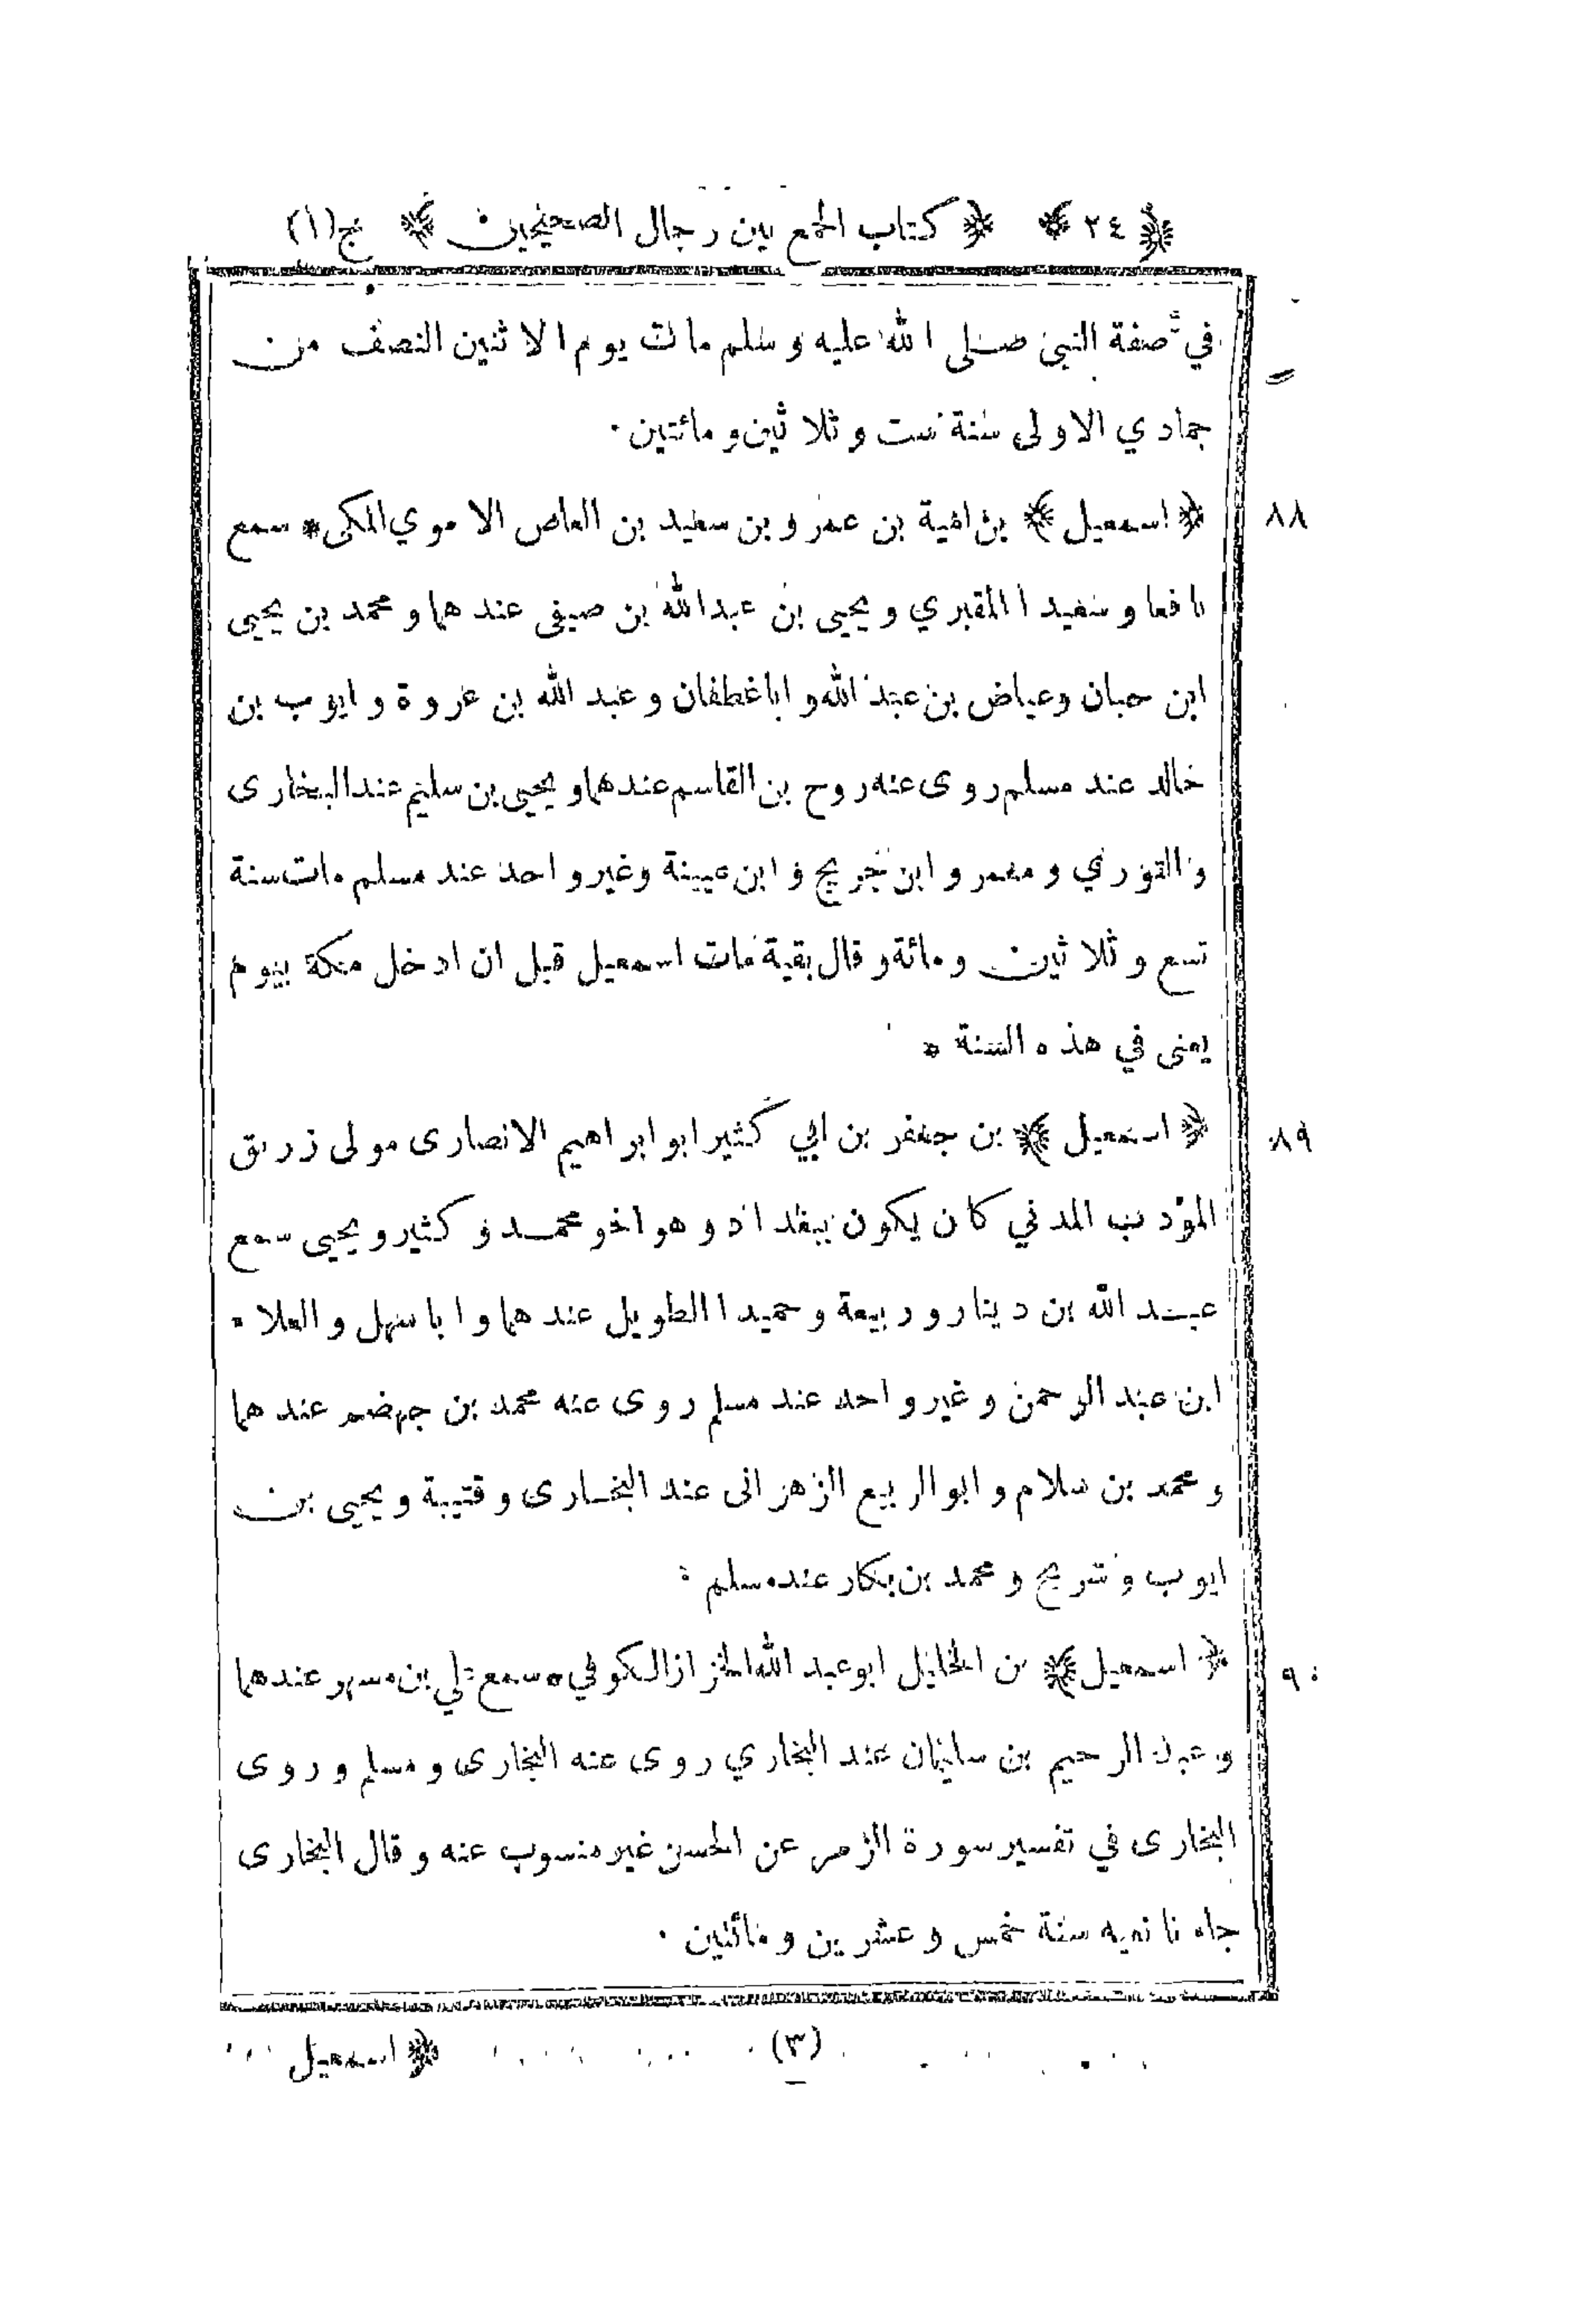 ﴿ ٢٤ ﴾ ﴿ كتاب الجمع بين رجال الصحيحين ﴾ ج(١)
في صفة النبي صلى الله عليه وسلم مات يوم الاثنين النصف من
جمادي الاولى سنة ست وثلاثين ومائتين ٠
٨٨ ﴿ اسمعيل ﴾ بن امية بن عمرو بن سعيد بن العاص الاموي المكى * سمع
نافعا وسعيدا المقبري ويحيى بن عبد الله بن صيفى عندهما ومحمد بن يحيى
ابن حبان وعياض بن عبد الله وابا غطفان وعبد الله بن عروة وايوب بن
خالد عند مسلم روى عنه روح بن القاسم عندهما ويحيى بن سليم عند البخارى
والثوري ومعمر وابن جريج وابن عيينة وغير واحد عند مسلم مات سنة
تسع وثلاثين ومائة وقال بقية مات اسمعيل قبل ان ادخل مكة بيوم
يعنى في هذه السنة *
٨٩ ﴿ اسمعيل ﴾ بن جعفر بن ابي كثير ابو ابراهيم الانصارى مولى زريق
المؤدب المدني كان يكون ببغداد وهو اخو محمد وكثير ويحيى سمع
عبد الله بن دينار وربيعة وحميدا الطويل عندهما وابا سهل والعلاء
ابن عبد الرحمن وغير واحد عند مسلم روى عنه محمد بن جهضم عندهما
ومحمد بن سلام وابو الربيع الزهرانى عند البخارى وقتيبة ويحيى بن
ايوب وشريح ومحمد بن بكار عند مسلم ٠
٩٠ ﴿ اسمعيل ﴾ بن الخليل ابو عبد الله الخزاز الكوفي * سمع علي بن مسهر عندهما
وعبد الرحيم بن سليمان عند البخاري روى عنه البخارى ومسلم وروى
البخارى في تفسير سورة الزمر عن الحسن غير منسوب عنه وقال البخارى
جاءنا نعيه سنة خمس وعشرين ومائتين ٠
(٣) ﴿ اسمعيل